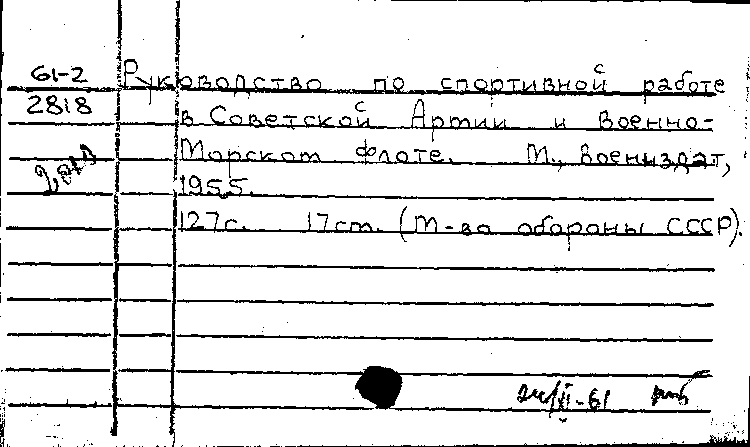 61-2 Руководство по спортивной работе
2818 в Советской Армии и Военно-
Морском Флоте. М., Воениздат,
1955.
127с. 17см. (М-во обороны СССР).
-61